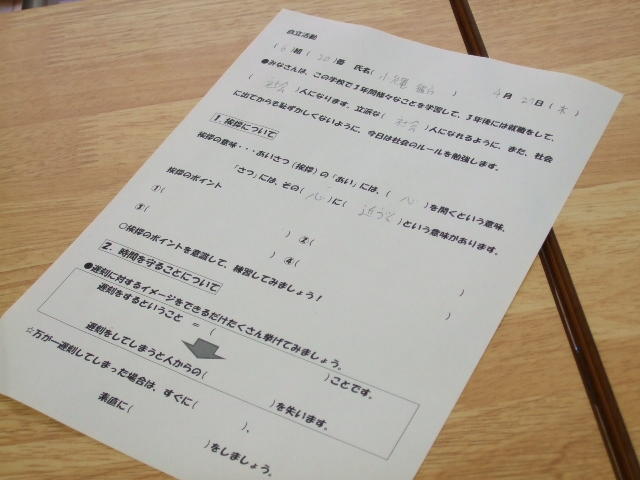 自立活動
( 6 )組 ( 20 )番 氏名( 小 ) 4月 27日 (木)
●みなさんは、この学校で3年間様々なことを学習して、3年後には就職をして、
( 社会 )人になります。立派な( 社会 )人になれるように、また、社会
に出てからも恥ずかしくないように、今日は社会のルールを勉強します。
1. 挨拶について
挨拶の意味・・・あいさつ(挨拶)の「あい」には、( 心 )を開くという意味、
「さつ」には、その( 心 )に( 近づく )という意味があります。
挨拶のポイント
①( ) ②( )
③( ) ④( )
○挨拶のポイントを意識して、練習してみましょう!
2. 時間を守ることについて
●遅刻に対するイメージをできるだけたくさん挙げてみましょう。
遅刻をするということ = ( )ことです。
遅刻をしてしまうと人からの( )を失います。
☆万が一遅刻してしまった場合は、すぐに( )、
素直に( )をしましょう。